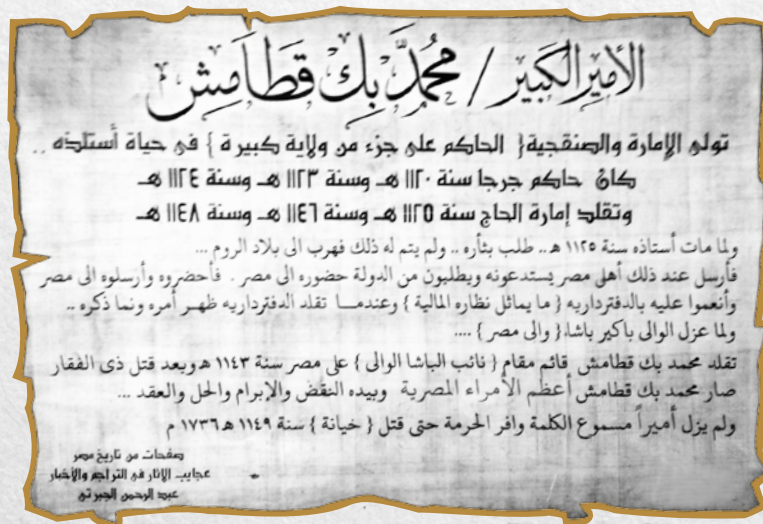 الأمير الكبير / محمد بك قطامش
تولى الإمارة والصنقجية { الحاكم على جزء من ولاية كبيرة } فى حياة أستلذه ..
كان حاكم جرجا سنة ١١٢٠ هـ وسنة ١١٢٣ هـ وسنة ١١٢٤ هـ
وتقلد إمارة الحاج سنة ١١٢٥ هـ وسنة ١١٤٦ هـ وسنة ١١٤٨ هـ
ولما مات أستاذه سنة ١١٢٥ هـ .. طلب بثأره .. ولم يتم له ذلك فهرب الى بلاد الروم ...
فأرسل عند ذلك أهلى مصر يستدعونه ويطلبون من الدولة حضوره الى مصر . فأحضروه وأرسلوه الى مصر
وأنعموا عليه بالدفترداريه { ما يماثل نظاره المالية } وعندمـــا تقلد الدفترداريه ظهـر أمره ونما ذكره ..
ولما عزل الوالى باكير باشا { والى مصر } ....
تقلد محمد بك قطامش قائم مقام { نائب الباشا الوالى } على مصر سنة ١١٤٣ هـ وبعد قتل ذى الفقار
صار محمد بك قطامش أعظم الأمراء المصرية وبيده النقض والإبرام والحل والعقد ...
ولم يزل أميراً مسموع الكلمة وافر الحرمة حتى قتل { خيانة } سنة ١١٤٩ هـ ١٧٣٦ م
صفحات من تاريخ مصر
عجايب الاثار فى التراجم والأخبار
عبد الرحمن الجبرتى